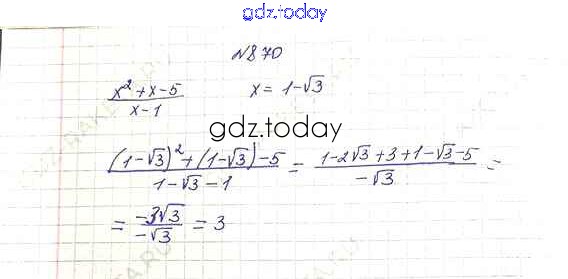 gdz.today
№870
(x²+x-5)/(x-1)    x = 1-√3
gdz.today
((1-√3)²+(1-√3)-5)/(1-√3-1) = (1-2√3+3+1-√3-5)/(-√3) =
= (-3√3)/(-√3) = 3